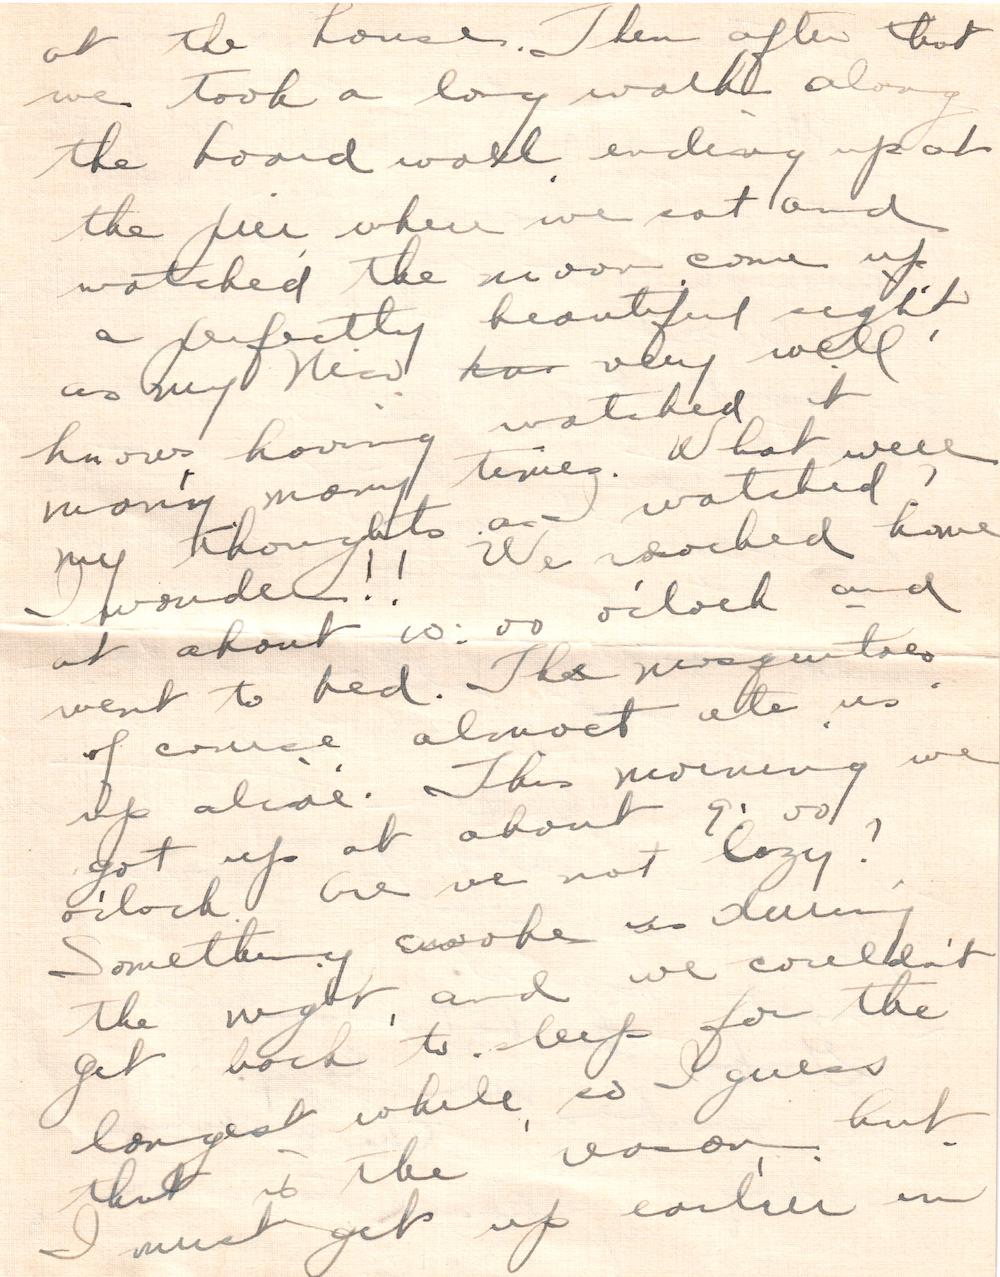 at the house. Then after that
we took a long walk along
the board walk ending up at
the pier, where we sat and
watched the moon come up
a perfectly beautiful sight,
as my very well
knows having watched it
many many times. What were
my thoughts as I watched?
I wonder!! We reached home
at about 10:00 o'clock and
went to bed. The mosquitoes
of course almost ate us
up alive. This morning we
got up at about 9:00
o'clock. Are we not lazy?
Something awoke us during
the night, and we couldn't
get back to sleep for the
longest while, so I guess
that is the reason, but
I must get up earlier in